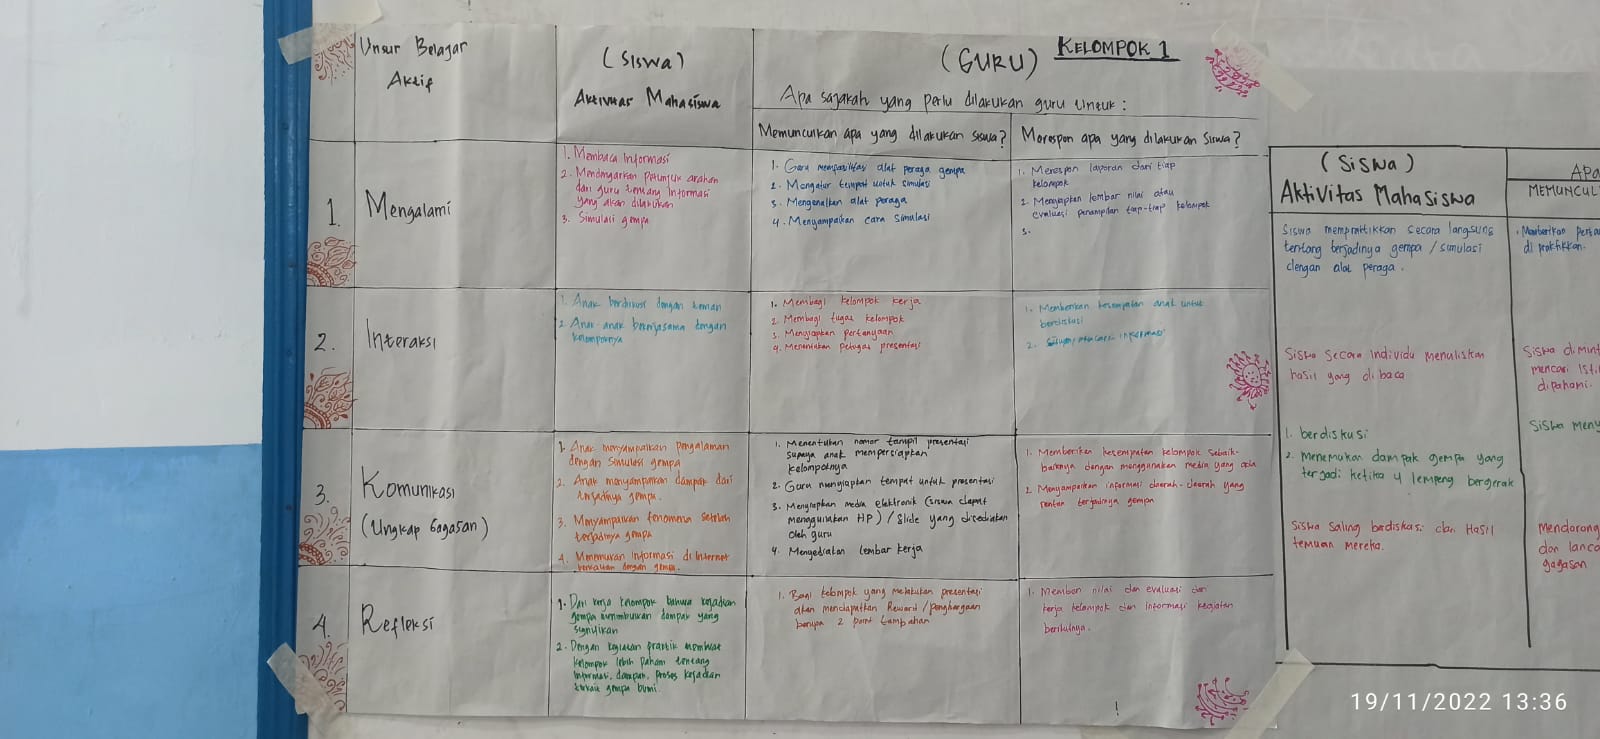 KELOMPOK 1
Unsur Belajar
Aktif
(Siswa)
Aktivitas Mahasiswa
(GURU)
Apa sajakah yang perlu dilakukan guru untuk :
Memunculkan apa yang dilakukan siswa?
Merespon apa yang dilakukan Siswa?
1. Mengalami
1. Membaca Informasi
2. Mendengarkan Petunjuk arahan
dari guru tentang Informasi
yang akan dilakukan
3. Simulasi gempa
1. Guru memfasilitasi alat peraga gempa
2. Mengatur tempat untuk simulasi
3. Mengenalkan alat peraga
4. Menyampaikan cara simulasi
1. Merespon laporan dari tiap
kelompok
2. Menyiapkan lembar nilai atau
evaluasi penampilan tiap-tiap kelompok
3.
2. Interaksi
1. Anak berdiskusi dengan teman
2. Anak-anak bekerjasama dengan
kelompoknya
1. Membagi kelompok kerja
2. Membagi tugas kelompok
3. Menyiapkan pertanyaan
4. Menentukan petugas presentasi
1. Memberikan kesempatan anak untuk
berdiskusi
2. informasi
3. Komunikasi
(Ungkap Gagasan)
1. Anak menyampaikan pengalaman
dengan simulasi gempa
2. Anak menyampaikan dampak dari
terjadinya gempa.
3. Menyampaikan fenomena setelah
terjadinya gempa
4. Menemukan Informasi di Internet
berkaitan dengan gempa.
1. Menentukan nomor tampil presentasi
supaya anak mempersiapkan
kelompoknya
2. Guru menyiapkan tempat untuk presentasi
3. Menyiapkan media elektronik (siswa dapat
menggunakan HP) / Slide yang disediakan
oleh guru
4. Menyediakan lembar kerja
1. Memberikan kesempatan kelompok sebaik-
baiknya dengan menggunakan media yang ada
2. Menyampaikan informasi daerah-daerah yang
rentan terjadinya gempa
4. Refleksi
1. Dari kerja kelompok bahwa kejadian
gempa menimbulkan dampak yang
signifikan
2. Dengan kegiatan praktik membuat
kelompok lebih paham tentang
informasi, dampak, proses kejadian
terkait gempa bumi.
1. Bagi kelompok yang melakukan presentasi
akan mendapatkan Reward / penghargaan
berupa 2 point tambahan
1. Memberi nilai dan evaluasi dari
kerja kelompok dan informasi kegiatan
berikutnya.
(Siswa)
Aktivitas Mahasiswa
APA
MEMUNCUL
Siswa mempraktikkan secara langsung
tentang terjadinya gempa / simulasi
dengan alat peraga.
di praktikkan.
Siswa secara individu menuliskan
hasil yang di baca
Siswa dimint
mencari isti
dipahami.
1. berdiskusi
2. Menemukan dampak gempa yang
terjadi ketika 4 lempeng bergerak
Siswa meny
Siswa saling berdiskusi dari Hasil
temuan mereka.
Mendorong
dan lanca
gagasan
19/11/2022 13:36